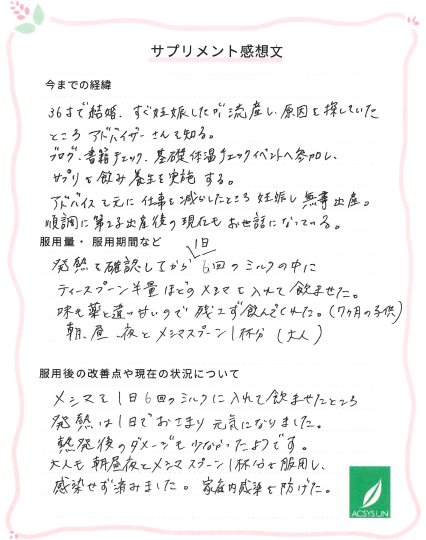 サプリメント感想文
今までの経緯
36才で結婚、すぐ妊娠したが流産し、原因を探していた
ところアドバイザーさんを知る。
ブログ、書籍チェック、基礎体温チェックイベントへ参加し、
サプリを飲み養生を実施する。
アドバイスを元に仕事を減らしたところ妊娠し無事出産。
順調に第2子出産後の現在もお世話になっている。
服用量・服用期間など
1日
発熱を確認してから6回のミルクの中に
ティースプーン半量ほどのメシマを入れて飲ませた。
味も薬と違い甘いので残さず飲んでくれた。(7ヶ月の子供)
朝、昼、夜とメシマスプーン1杯分(大人)
服用後の改善点や現在の状況について
メシマを1日6回のミルクに入れて飲ませたところ
発熱は1日でおさまり元気になりました。
熱発後のダメージも少なかったようです。
大人も朝昼夜とメシマスプーン1杯分を服用し、
感染せず済みました。家庭内感染を防げた。
ACSYS UN